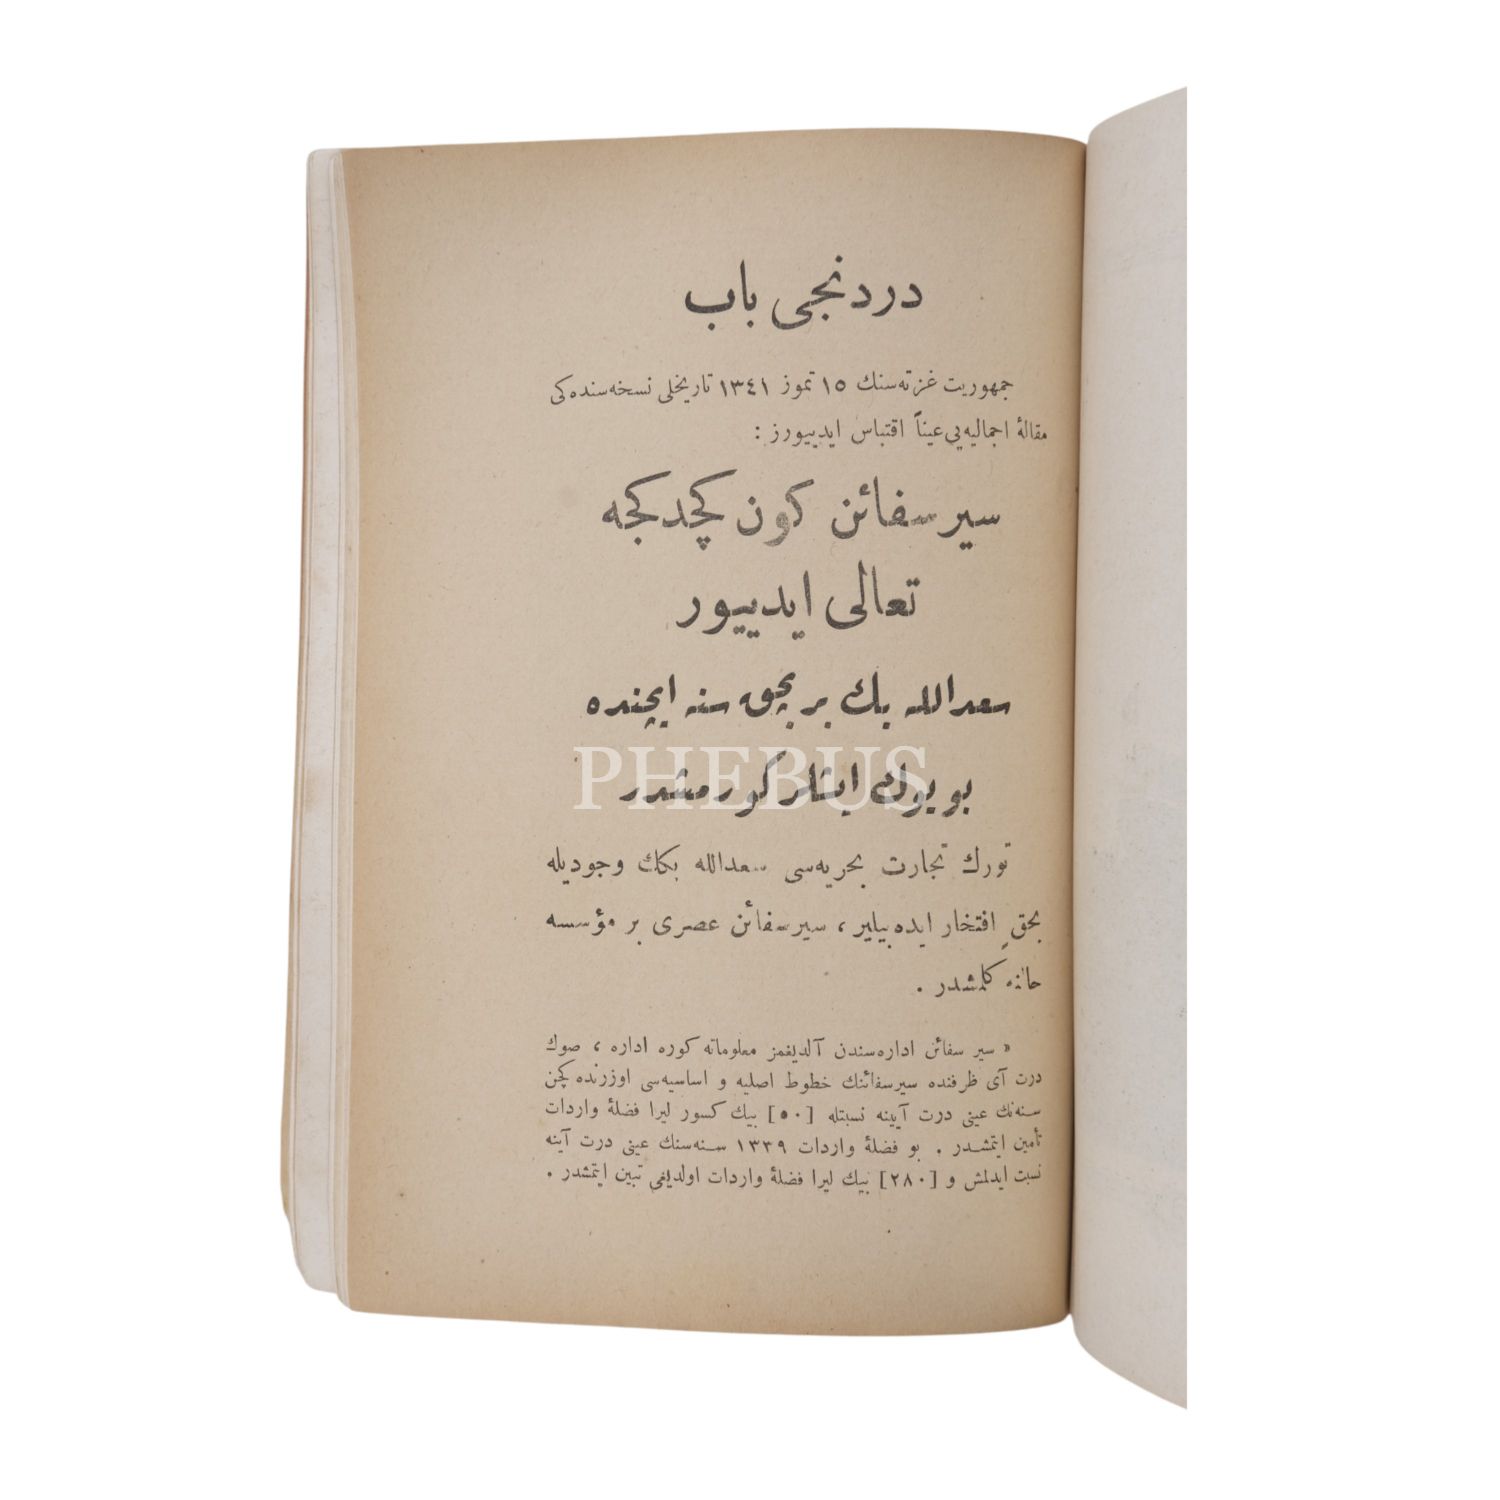 دردنجی باب
جمهوریت غزته‌سنك ١٥ تموز ١٣٤١ تاریخلی نسخه‌سنده‌كی
مقالهٔ اجمالیه‌یی عیناً اقتباس ایدییورز :
سیرسفائن كون كچدكجه
تعالی ایدییور
سعدالله بك بر بچق سنه ایچنده
بویوك ایشلر كورمشدر
PHEBUS
تورك تجارت بحریه‌سی سعدالله بكك وجودیله
بحقٍ افتخار ایده‌بیلیر ، سیرسفائن عصری بر مؤسسه
حاننه كلمشدر .
« سیر سفائن اداره‌سندن آلدیغمز معلوماته كوره اداره ، صوك
درت آی ظرفنده سیرسفائنك خطوط اصلیه و اساسیه‌سی اوزرنده كچن
سنه‌نك عینی درت آیینه نسبتله [٥٠] بیك كسور لیرا فضلهٔ واردات
تأمین ایتمشدر . بو فضلهٔ واردات ١٣٣٩ سنه‌سنك عینی درت آینه
نسبت ایدلمش و [٢٨٠] بیك لیرا فضلهٔ واردات اولدیغی تبین ایتمشدر .